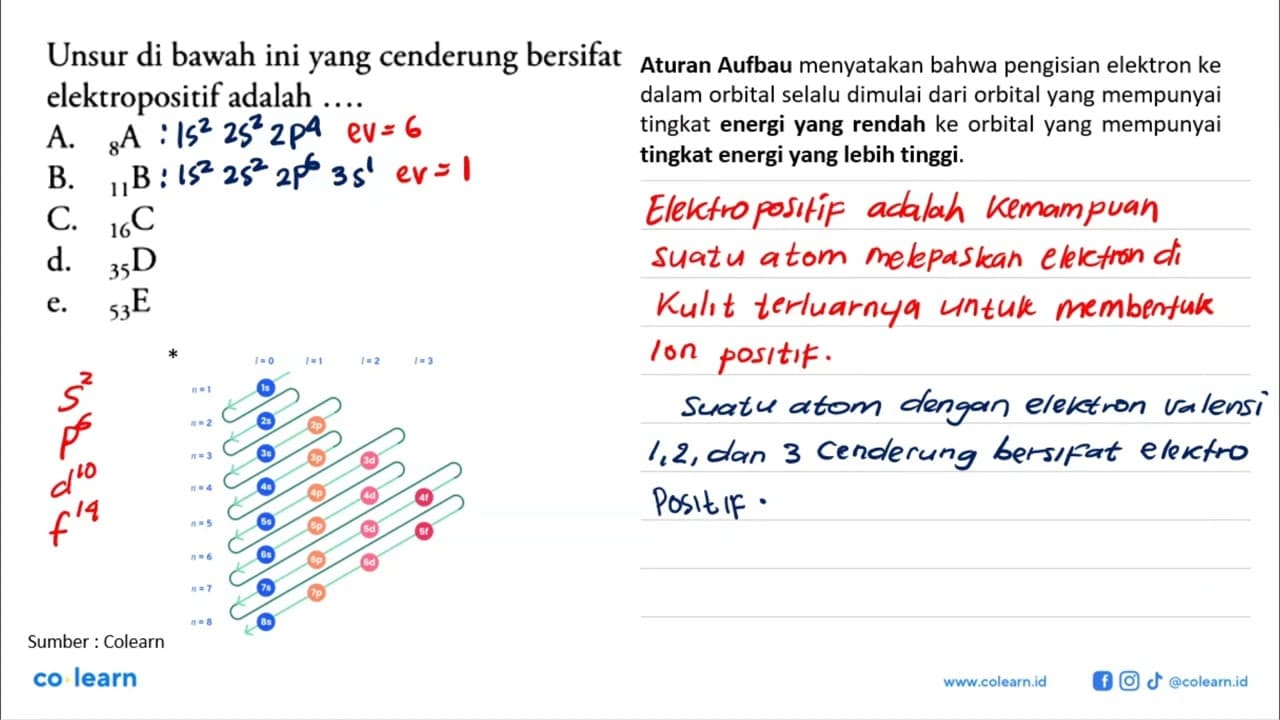 Unsur di bawah ini yang cenderung bersifat
elektropositif adalah ....
A. ₈A : 1s² 2s² 2p⁴ ev = 6
B. ₁₁B : 1s² 2s² 2p⁶ 3s¹ ev = 1
C. ₁₆C
d. ₃₅D
e. ₅₃E
*
l = 0 l = 1 l = 2 l = 3
n = 1 1s
n = 2 2s 2p
n = 3 3s 3p 3d
n = 4 4s 4p 4d 4f
n = 5 5s 5p 5d 5f
n = 6 6s 6p 6d
n = 7 7s 7p
n = 8 8s
s²
p⁶
d¹⁰
f¹⁴
Sumber : Colearn
Aturan Aufbau menyatakan bahwa pengisian elektron ke
dalam orbital selalu dimulai dari orbital yang mempunyai
tingkat energi yang rendah ke orbital yang mempunyai
tingkat energi yang lebih tinggi.
Elektropositif adalah kemampuan
suatu atom melepaskan elektron di
kulit terluarnya untuk membentuk
Ion positif.
Suatu atom dengan elektron valensi
1, 2, dan 3 cenderung bersifat elektro
Positif.
co learn
www.colearn.id
@colearn.id